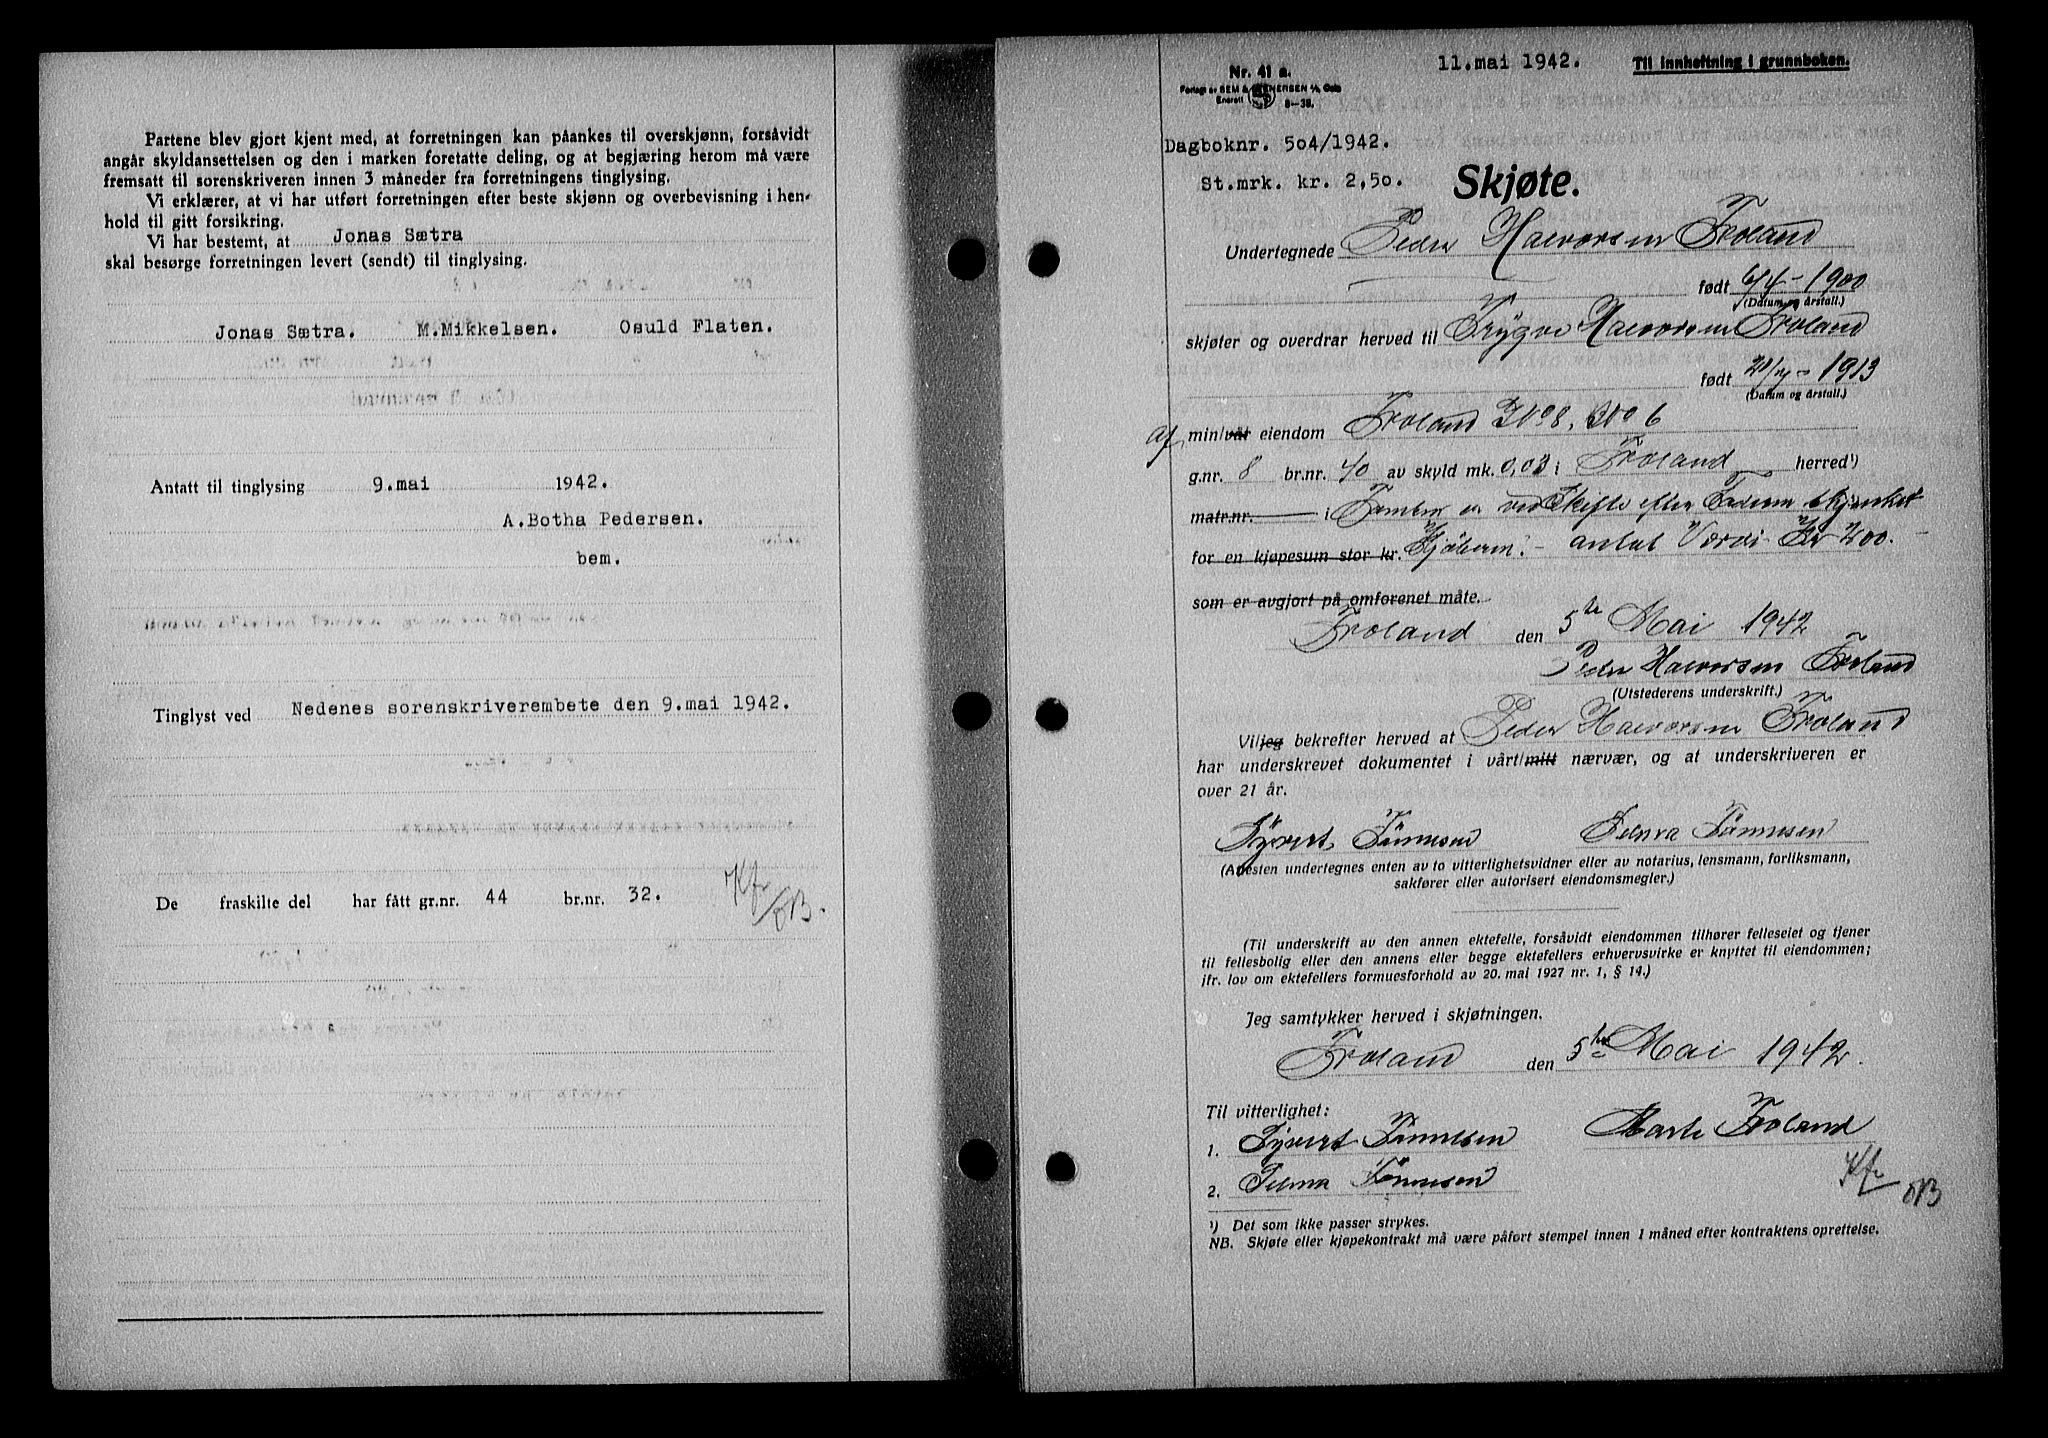 Partene blev gjort kjent med, at forretningen kan påankes til overskjønn, forsåvidt
angår skyldansettelsen og den i marken foretatte deling, og at begjæring herom må være
fremsatt til sorenskriveren innen 3 måneder fra forretningens tinglysing.
Vi erklærer, at vi har utført forretningen efter beste skjønn og overbevisning i hen-
hold til gitt forsikring.
Vi har bestemt, at Jonas Sætra
skal besørge forretningen levert (sendt) til tinglysing.
Jonas Sætra. M.Mikkelsen. Osuld Flaten.
Antatt til tinglysing 9.mai 1942.
A.Botha Pedersen.
bem.
Tinglyst ved Nedenes sorenskriverembete den 9.mai 1942.
De fraskilte del har fått gr.nr. 44 br.nr. 32.
11.mai 1942. Til innheftning i grunnboken.
Nr. 41 a.
Forlagt av SEM & STENERSEN A/S, Oslo
Enerett 8-38.
Dagboknr. 504/1942.
St.mrk. kr. 2,50.
Skjøte.
Undertegnede Peder Halvorsen Froland
født 6/4-1900
(Datum og årstall.)
skjøter og overdrar herved til Trygve Halvorsen Froland
født 1913
(Datum og årstall.)
af min/vår eiendom Froland No 8, 6
g.nr. 8 br.nr. 40 av skyld mk. 0,03 i Froland herred¹)
matr.nr. i Tomten er ved Skifte efter Faderen skjenket
for en kjøpesum stor kr. Kjøberen. - antat Værdi Kr 200.-
som er avgjort på omforenet måte.
Froland den 5te Mai 1942
Peder Halvorsen Froland
(Utstederens underskrift.)
Vi/jeg bekrefter herved at Peder Halvorsen Froland
har underskrevet dokumentet i vårt/mitt nærvær, og at underskriveren er
over 21 år.
Syvert Tønnesen Selma Tønnesen
(Avesten undertegnes enten av to vitterlighetsvidner eller av notarius, lensmann, forliksmann,
sakfører eller autorisert eiendomsmegler.)
(Til underskrift av den annen ektefelle, forsåvidt eiendommen tilhører felleseiet og tjener
til fellesbolig eller den annens eller begge ektefellers erhvervsvirke er knyttet til eiendommen;
jfr. lov om ektefellers formuesforhold av 20. mai 1927 nr. 1, § 14.)
Jeg samtykker herved i skjøtningen.
Froland den 5te Mai 1942.
Til vitterlighet:
Marte Froland
1. Syvert Tønnesen
2. Selma Tønnesen
¹) Det som ikke passer strykes.
NB. Skjøte eller kjøpekontrakt må være påført stempel innen 1 måned efter kontraktens oprettelse.